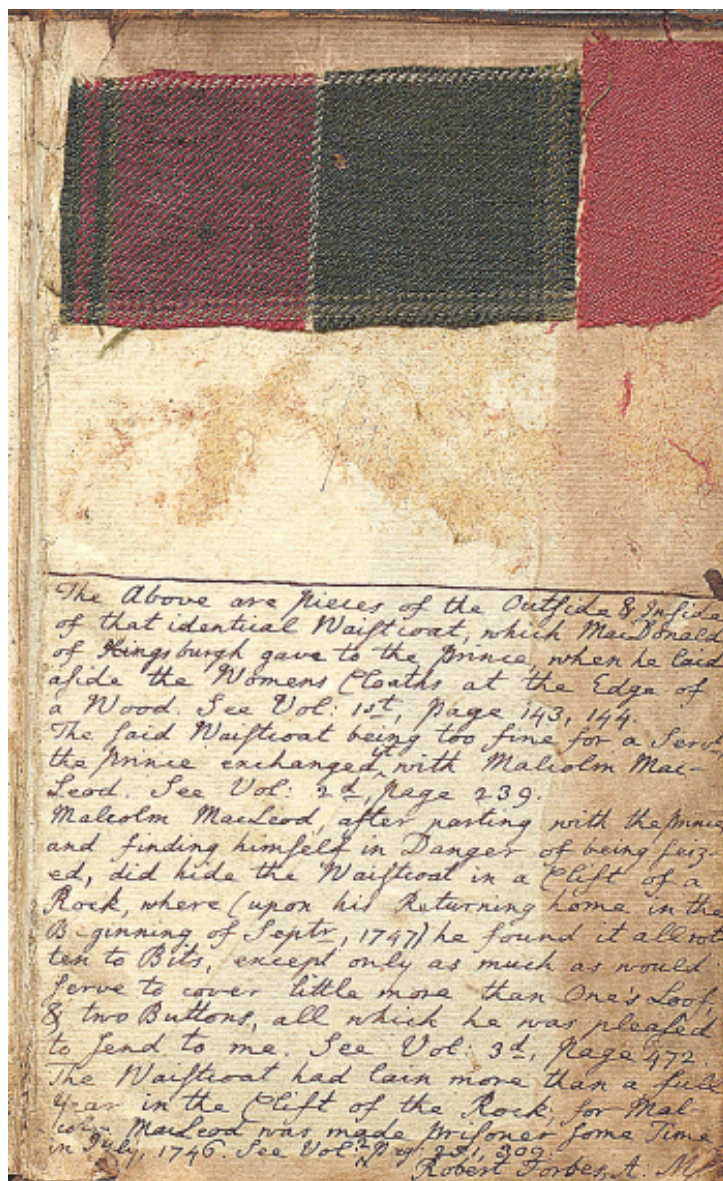 The Above are pieces of the Outſide & Inſide
of that identical Waiſtcoat, which MacDonald
of Kingsburgh gave to the prince, when he laid
aſide the Womens Cloaths at the Edge of
a Wood. See Vol: 1st, page 143, 144.
The ſaid Waiſtcoat being too fine for a Servt,
the prince exchanged it with Malcolm Mac-
Leod. See Vol: 2d, page 239.
Malcolm MacLeod, after parting with the prince
and finding himſelf in Danger of being ſeiz-
ed, did hide the Waiſtcoat in a Clift of a
Rock, where (upon his Returning home in the
Beginning of Septr, 1747) he found it all rot
ten to Bits, except only as much as would
ſerve to cover little more than One's Loof,
& two Buttons, all which he was pleaſed
to ſend to me. See Vol: 3d, page 472.
The Waiſtcoat had lain more than a full
Year in the Clift of the Rock; for Mal-
colm MacLeod was made priſoner ſome Time
in July, 1746. See Vol:
Robert Forbes, A. M.